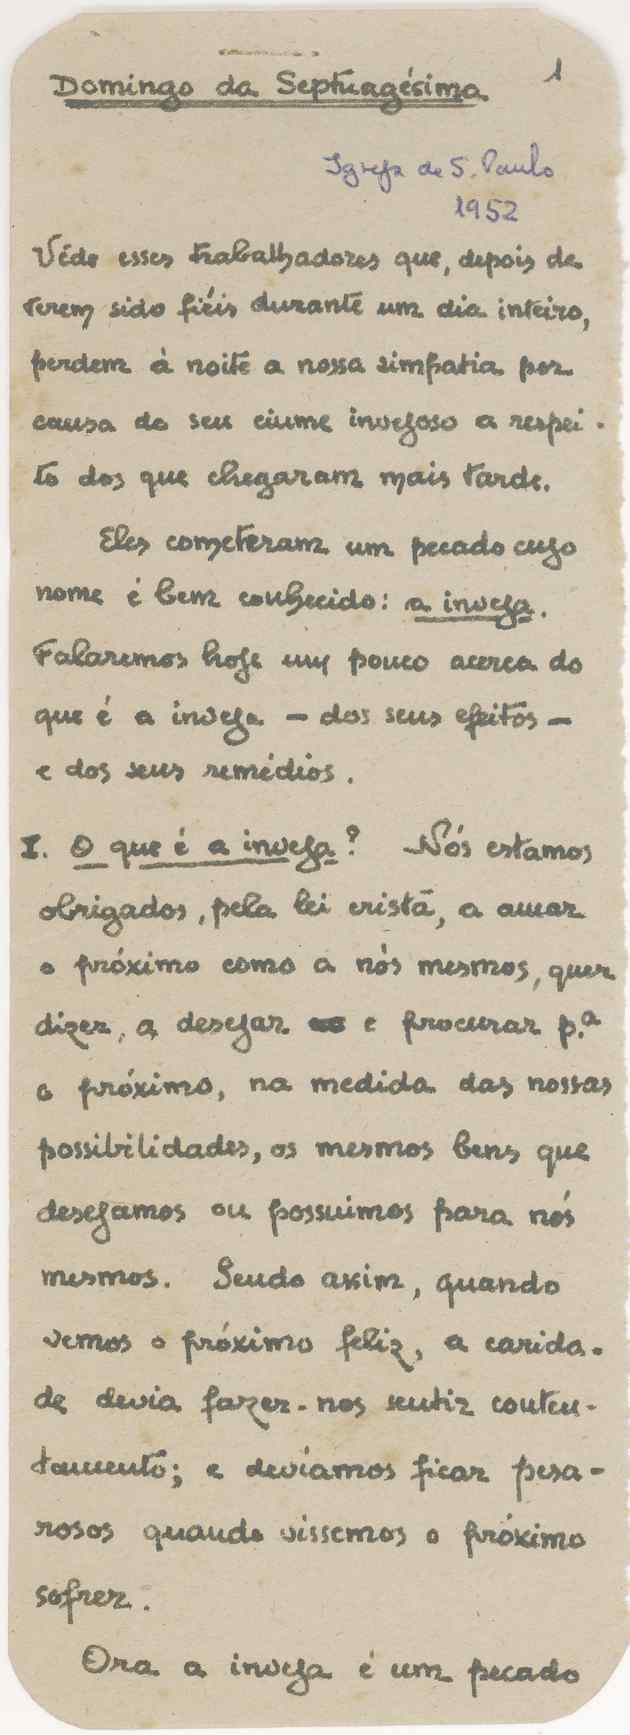 1
Domingo da Septuagésima
Igreja de S. Paulo
1952
Vêde esses trabalhadores que, depois de
terem sido fiéis durante um dia inteiro,
perdem à noite a nossa simpatia por
causa do seu ciume invejoso a respei-
to dos que chegaram mais tarde.
Eles cometeram um pecado cujo
nome é bem conhecido: a inveja.
Falaremos hoje um pouco acerca do
que é a inveja - dos seus efeitos -
e dos seus remédios.
I. O que é a inveja? Nós estamos
obrigados, pela lei cristã, a amar
o próximo como a nós mesmos, quer
dizer, a desejar e procurar p.ª
o próximo, na medida das nossas
possibilidades, os mesmos bens que
desejamos ou possuimos para nós
mesmos. Sendo assim, quando
vemos o próximo feliz, a carida-
de devia fazer-nos sentir conten-
tamento; e devíamos ficar pesa-
rosos quando vissemos o próximo
sofrer.
Ora a inveja é um pecado